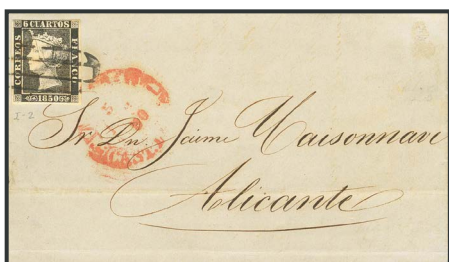 6 CUARTOS
CORREOS
FRANCO
1850
Sr. Dn. Jaime Maisonnave
Alicante